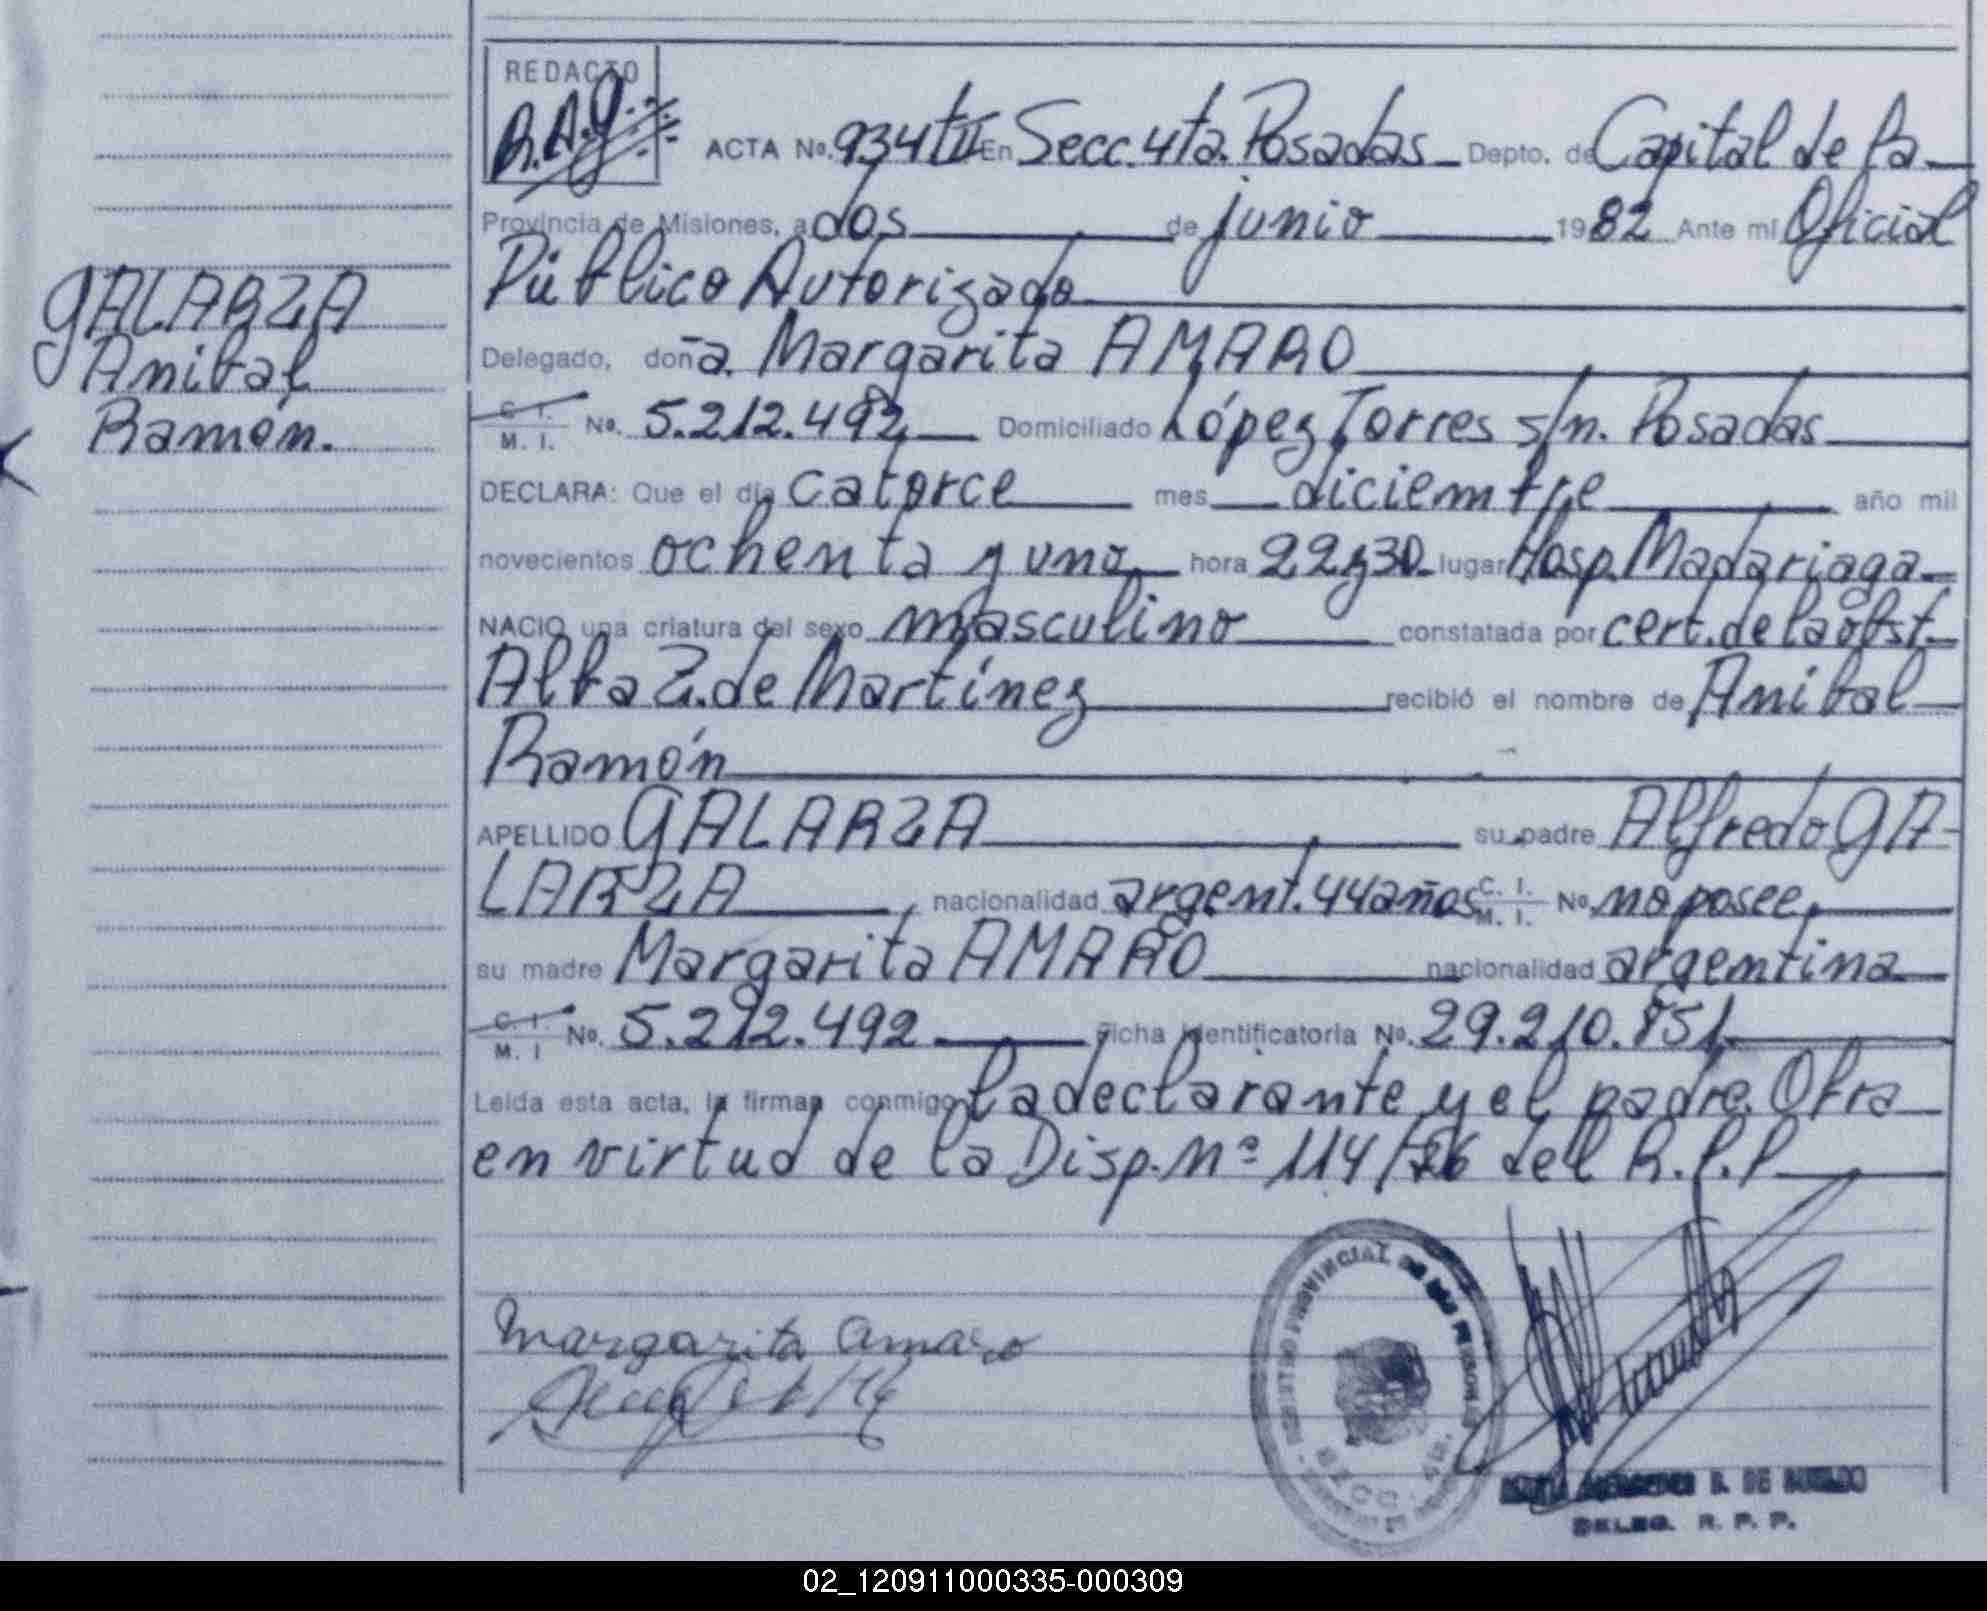 REDACTO
R.A.G.
ACTA No. 934 tII En Secc. 4ta. Posadas Depto. de Capital de la
Provincia de Misiones, a dos de junio 1982 Ante mi Oficial
Público Autorizado
Delegado, doña. Margarita AMARO
C. I. M. I. No. 5.212.492 Domiciliado López Torres s/n. Posadas
DECLARA: Que el día catorce mes diciembre año mil
novecientos ochenta y uno hora 22y30 lugar Hosp. Madariaga
NACIO una criatura del sexo masculino constatada por cert. de la obst.
Alba Z. de Martínez recibió el nombre de Anibal
Ramón
APELLIDO GALARZA su padre Alfredo GA-
LARZA, nacionalidad argent. 44 años C. I. M. I. No. no posee,
su madre Margarita AMARO nacionalidad argentina
C. I. M. I No. 5.212.492 Ficha identificatoria No. 29.210.851
Leída esta acta, la firman conmigo la declarante y el padre. Obra
en virtud de la Disp. Nº 114/76 del R.P.P
GALARZA
Anibal
Ramón.
Margarita Amaro
REGISTRO PROVINCIAL DE LAS PERSONAS
SECC. 4ta.
DE
DELEG. R. P. P.
02_120911000335-000309